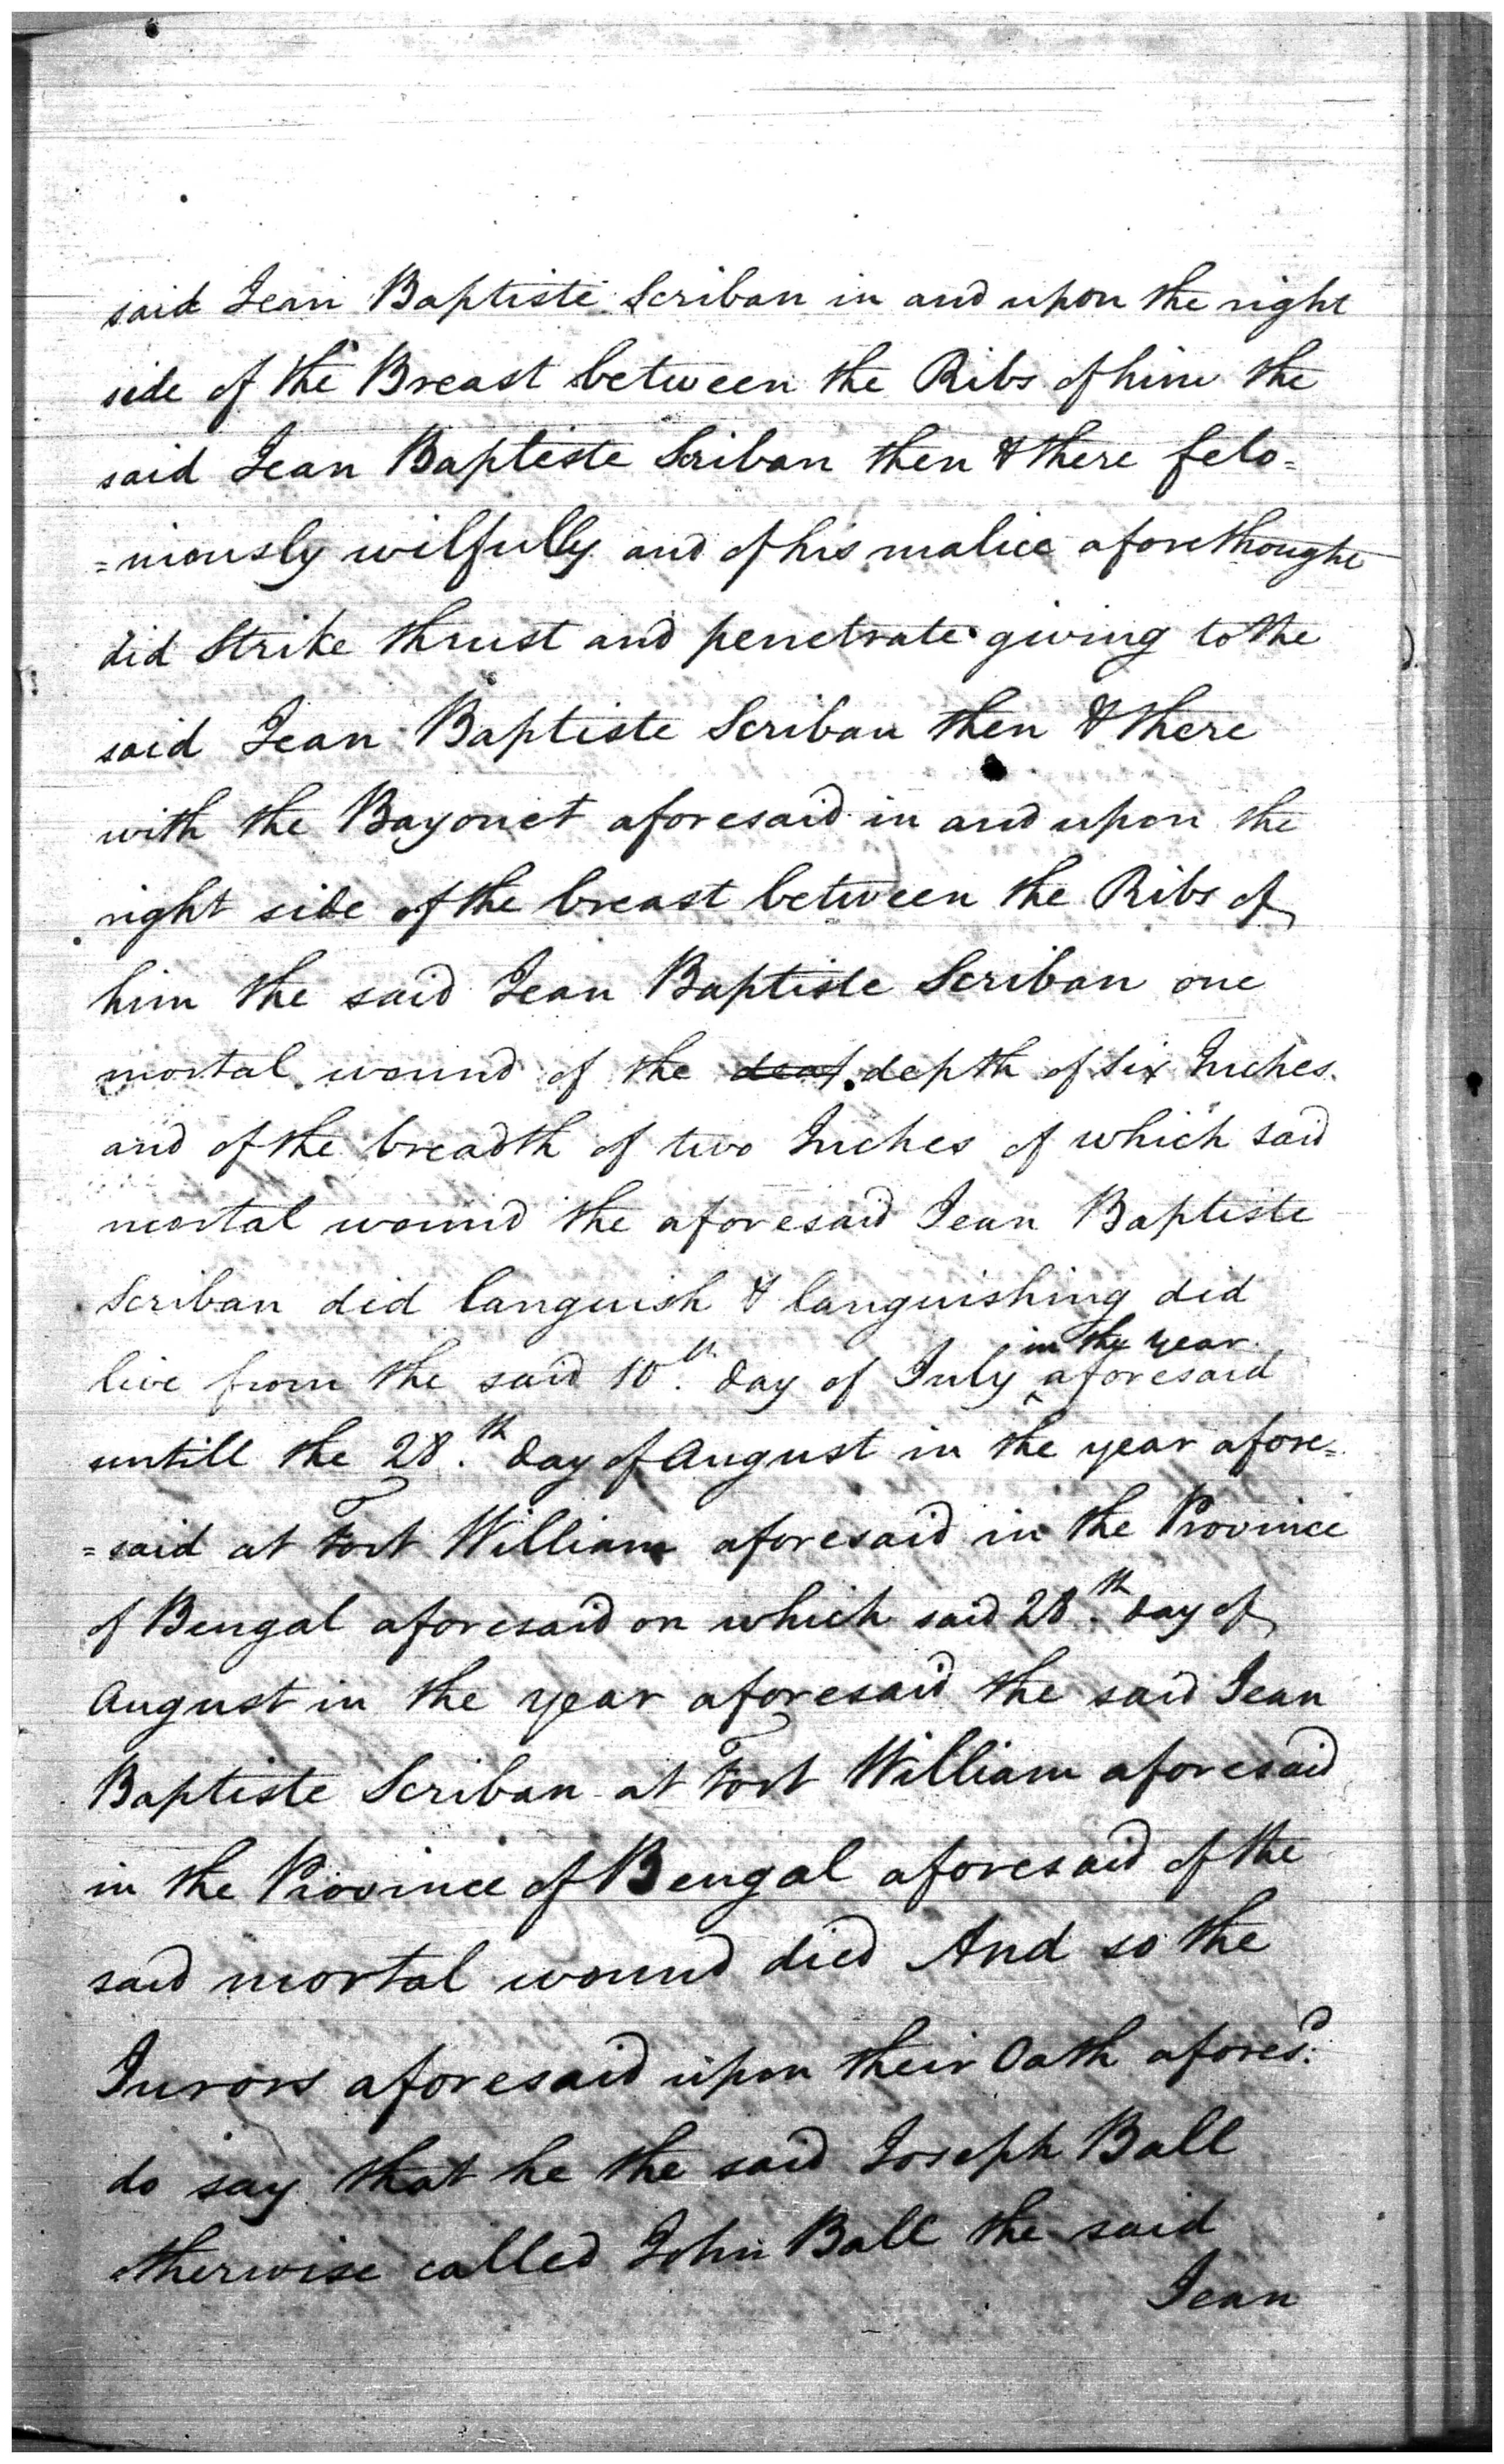 said Jean Baptiste Scriban in and upon the right
side of the Breast between the Ribs of him the
said Jean Baptiste Scriban then & there felo=
=niously wilfully and of his malice aforethought
did Strike thrust and penetrate giving to the
said Jean Baptiste Scriban then & there
with the Bayonet aforesaid in and upon the
right side of the breast between the Ribs of
him the said Jean Baptiste Scriban one
mortal wound of the depth of six Inches
and of the breadth of two Inches of which said
mortal wound the aforesaid Jean Baptiste
Scriban did languish & languishing did
in the year
live from the said 10th. day of July ^ aforesaid
untill the 28th. day of August in the year afore=
=said at Fort William aforesaid in the Province
of Bengal aforesaid on which said 28th. day of
August in the year aforesaid the said Jean
Baptiste Scriban at Fort William aforesaid
in the Province of Bengal aforesaid of the
said mortal wound died And so the
Jurors aforesaid upon their Oath afores:d
do say that he the said Joseph Ball
otherwise called John Ball the said
Jean